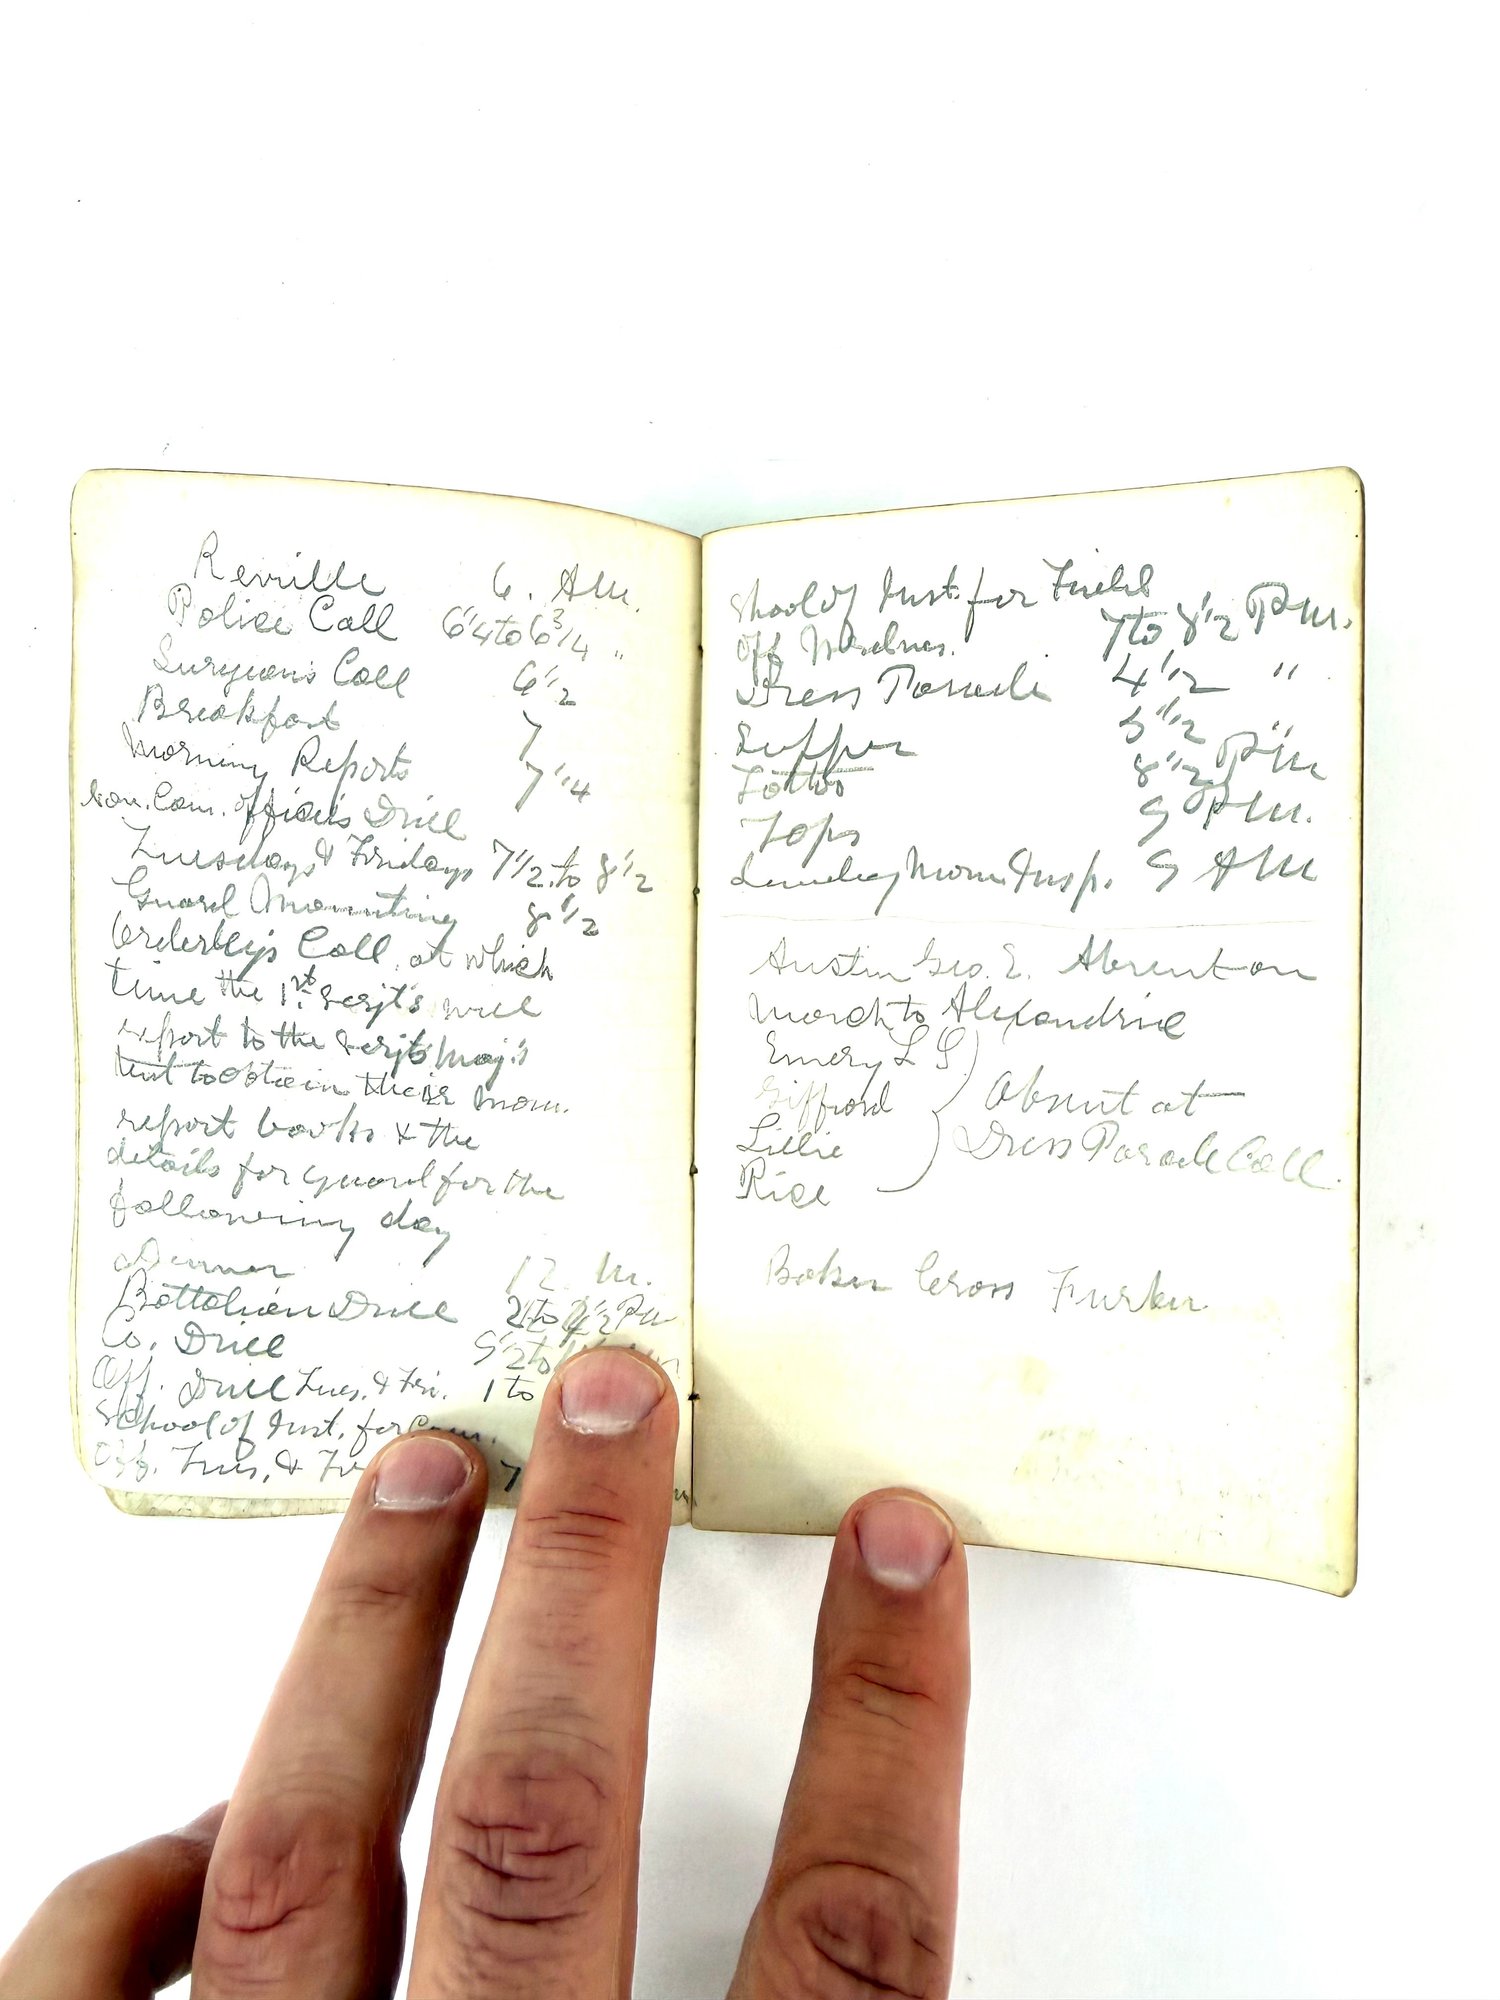 Reville 6. AM.
Police Call 6 1/4 to 6 3/4 "
Surgeons Call 6 1/2
Breakfast 7
Morning Reports 7 1/4
Non. Com. Officers Drill
Tuesdays & Fridays 7 1/2 to 8 1/2
Guard Mounting 8 1/2
Orderly's Call, at which
time the 1st Serjt's will
report to the Serjt Maj's
tent to obtain their morn.
report books & the
details for guard for the
following day
Dinner 12 M.
Battalion Drill 2 to 4 1/2 PM
Co. Drill to
Off. Drill Tues. & Fri. 1 to
School of Inst. for Com.
Off. Tues. & 7
School of Inst. for Field
Off Wednes. 7 to 8 1/2 PM.
Dress Parade 4 1/2 "
Supper 5 1/2 "
Tattoo 8 1/2 PM
Taps 9 PM.
Sunday Morn. Insp. 9 AM
Austin Geo. E. Absent on
March to Alexandria
Emery L S
Gifford
Lillie
Rice
Absent at
Dress Parade Call.
Baker Cross Furber